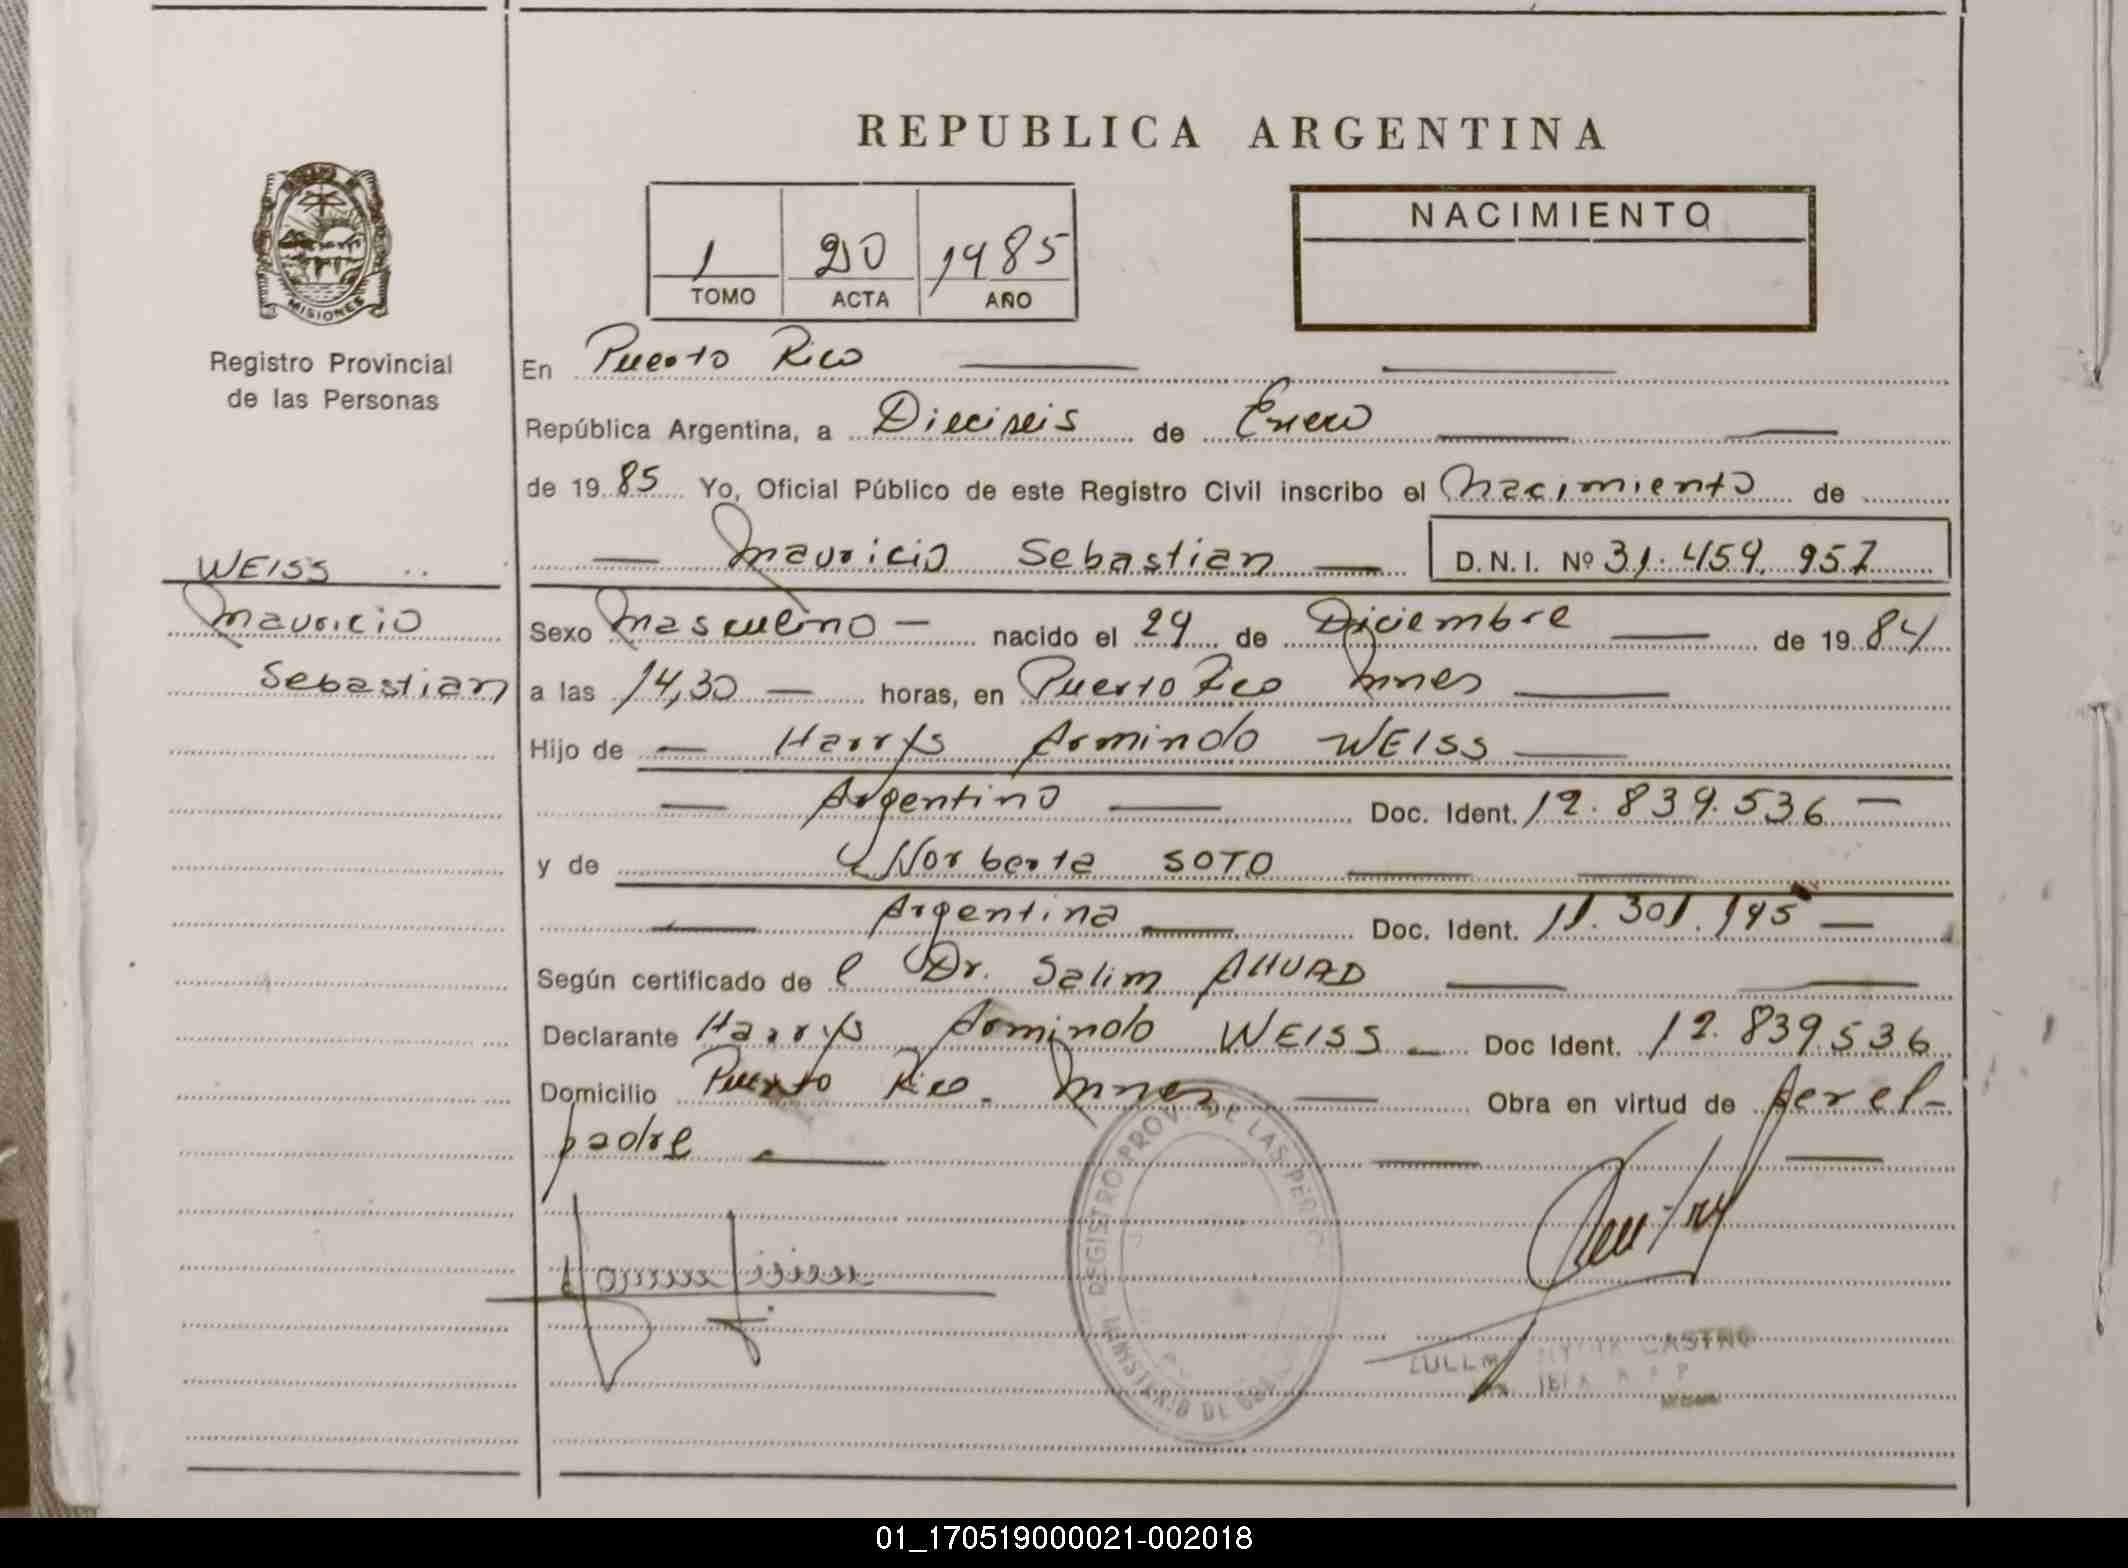 REPUBLICA ARGENTINA
1 20 1985
TOMO ACTA AÑO
NACIMIENTO
MISIONES
Registro Provincial
de las Personas
En Puerto Rico
República Argentina, a Dieciseis de Enero
de 19 85 Yo, Oficial Público de este Registro Civil inscribo el Nacimiento de
Mauricio Sebastian D.N.I. Nº 31.459.957
WEISS
Mauricio
Sebastian
Sexo Masculino nacido el 29 de Diciembre de 19 84
a las 14,30 horas, en Puerto Rico Mnes
Hijo de Harrys Armindo WEISS
Argentino Doc. Ident. 12.839.536
y de Norberta SOTO
Argentina Doc. Ident. 11.301.195
Según certificado de l Dr. Salim AHUAD
Declarante Harrys Armindo WEISS Doc Ident. 12.839.536
Domicilio Puerto Rico. Mnes Obra en virtud de ser el
padre
REGISTRO PROV. DE LAS PERSO
MINISTERIO DE GO
CASTRO
01_170519000021-002018